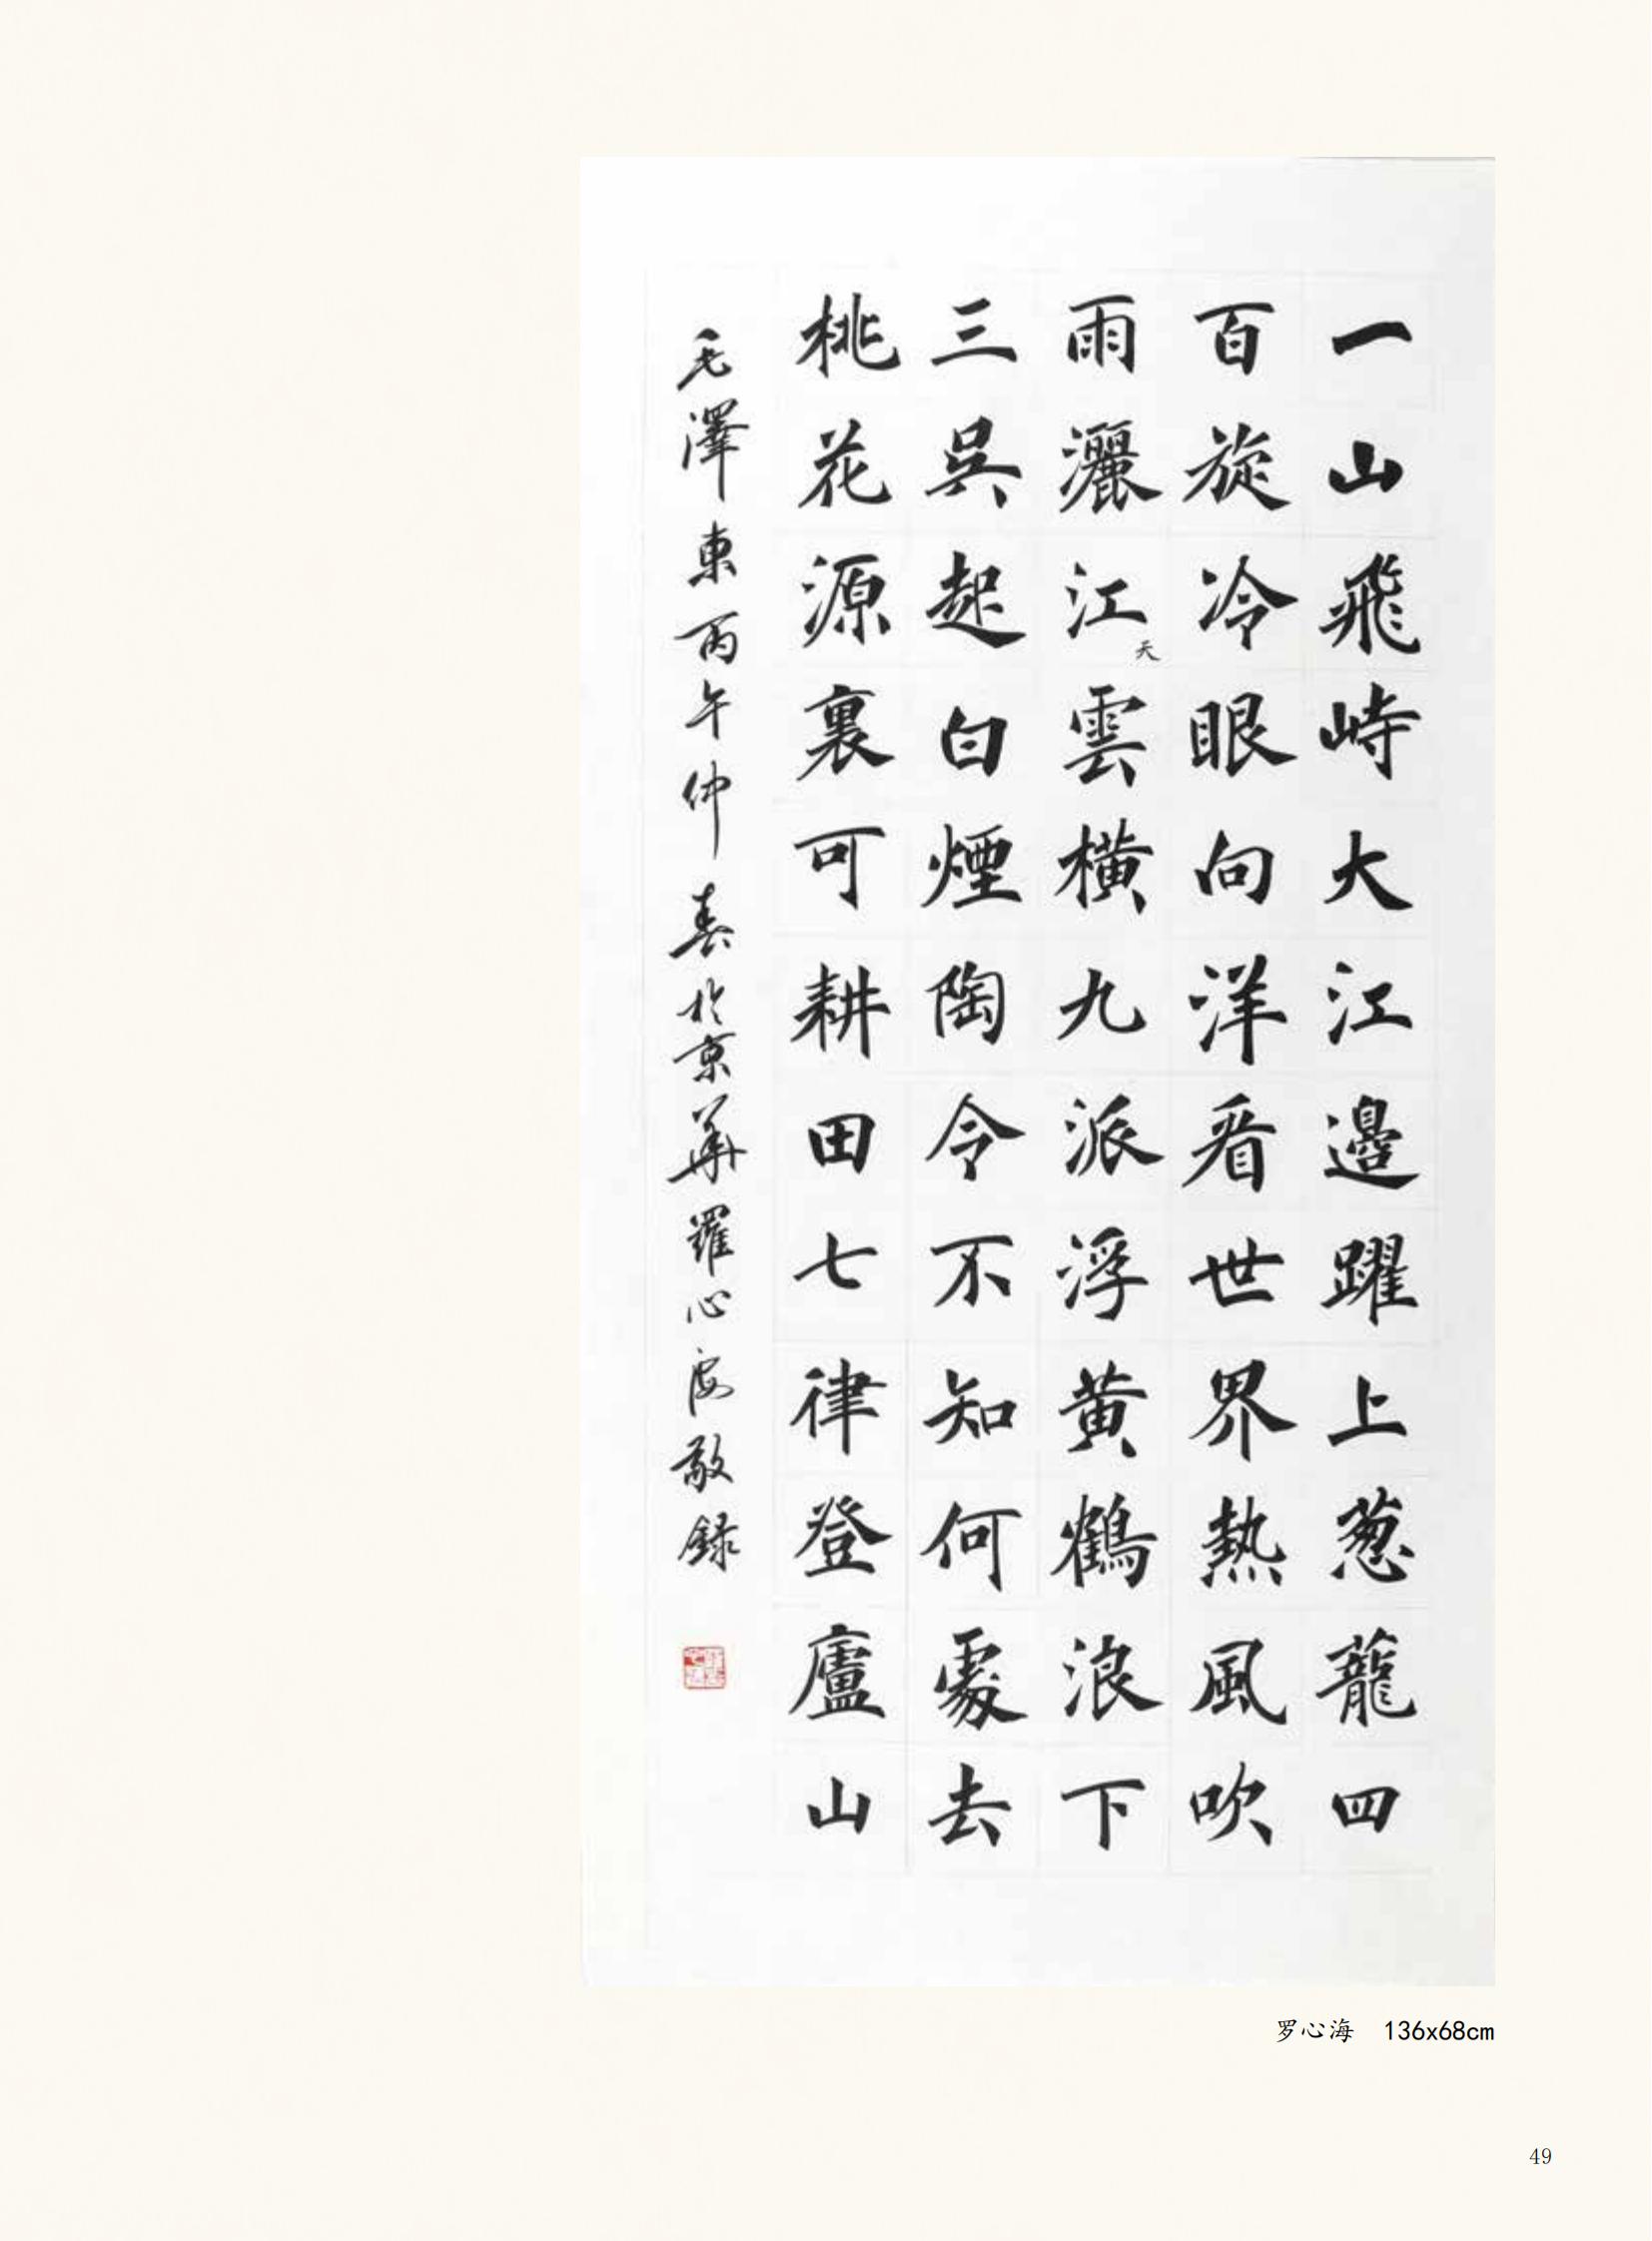 一山飛峙大江邊躍上葱蘢四
百旋冷眼向洋看世界熱風吹
雨灑江天雲橫九派浮黄鶴浪下
三吳起白煙陶令不知何處去
桃花源裏可耕田七律登廬山
毛澤東丙午仲春於京華羅心海敬録
罗心海 136x68cm
49